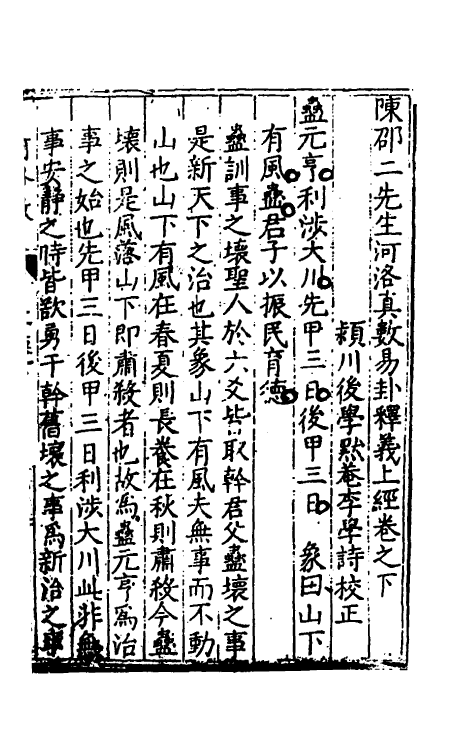 陳邵二先生河洛真數易卦釋義上經卷之下
穎川後學㸃菴李學詩校正
蠱元亨利涉大川先甲三日後甲三日　象曰山下
有風蠱君子以振民育德
蠱訓事之壞聖人於六爻皆取幹君父蠱壞之事
是新天下之治也其象山下有風夫無事而不動
山也山下有風在春夏則長養在秋則肅殺今蠱
壞則是風落山下即肅殺者也故爲蠱元亨爲治
事之始也先甲三日後甲三日利涉大川此非無
事安靜之時皆欲勇于幹舊壞之事爲新治之事